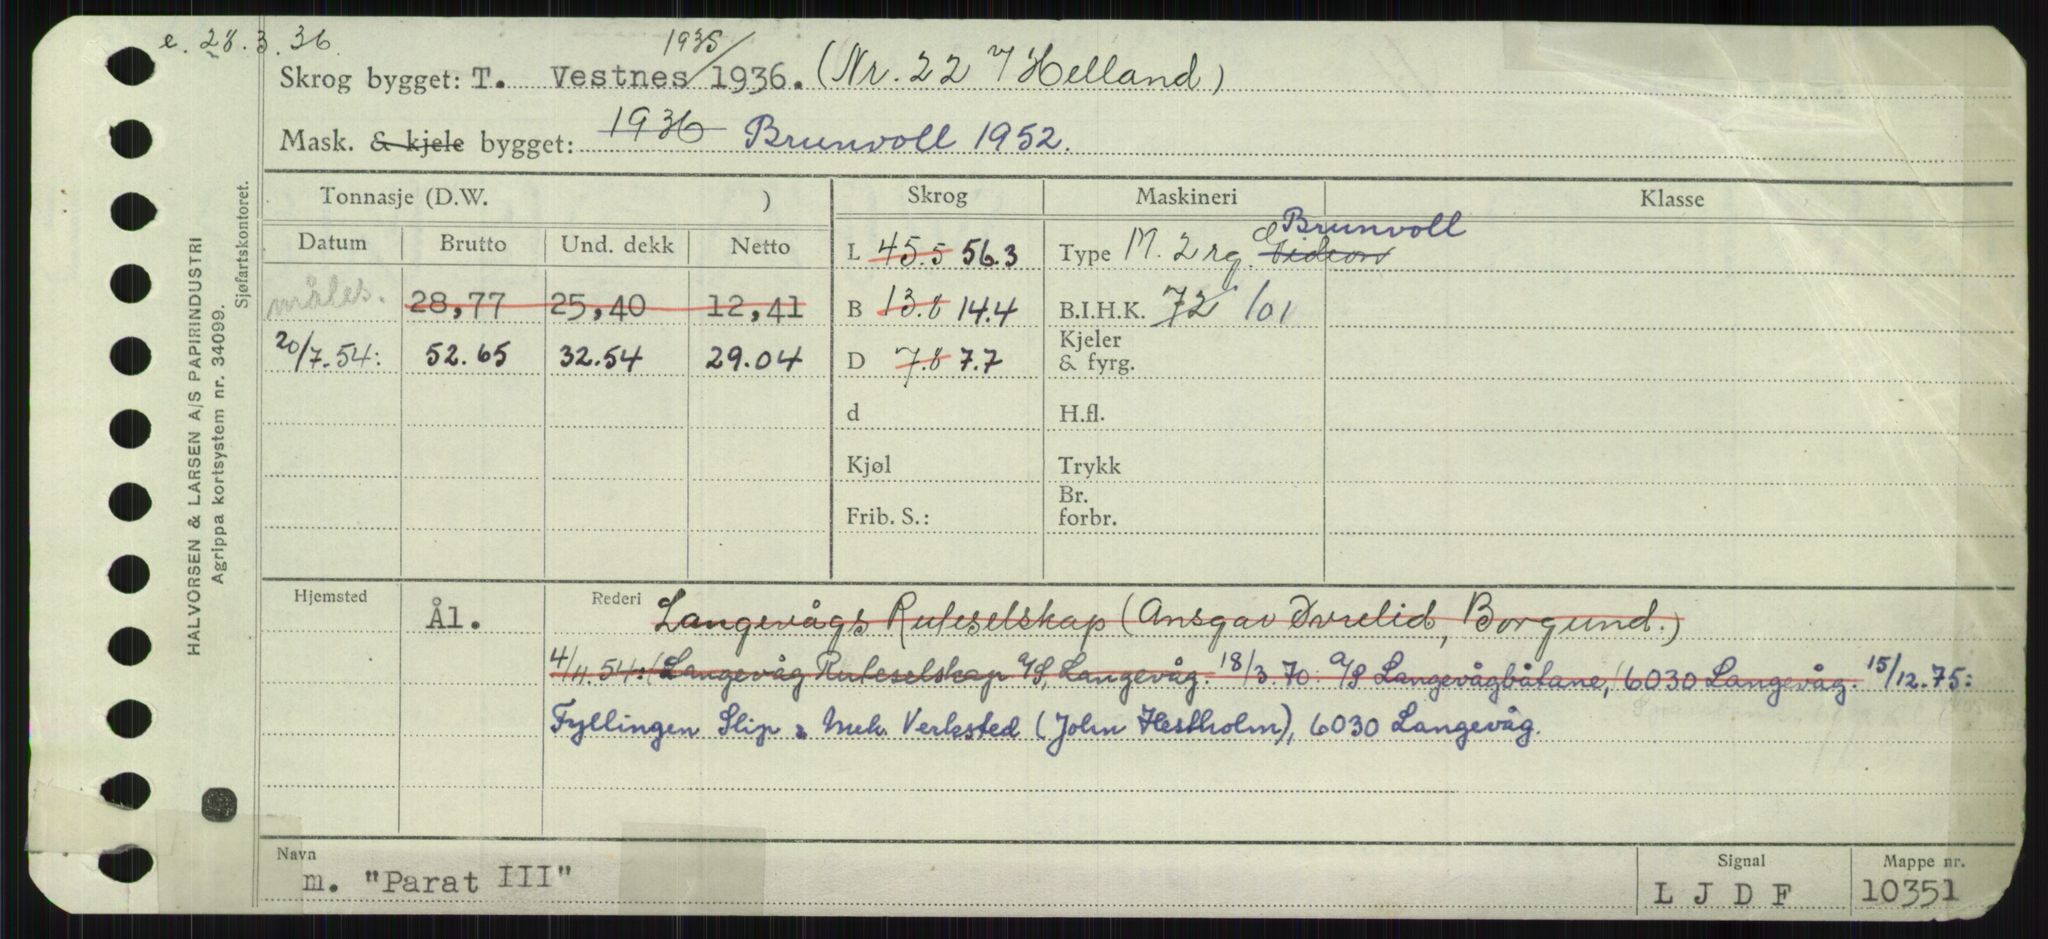 e. 28.3.36.
1935/
Skrog bygget: T. Vestnes 1936. (Nr. 22 v/ Helland)
Mask. & kjele bygget: 1936 Brunvoll 1952.
Tonnasje (D.W. ) Skrog Maskineri Klasse
Datum Brutto Und. dekk Netto L 45.5 56.3 Type M. 2 rg. Brunvoll
måles. 28,77 25,40 12,41 B 13.8 14.4 B.I.H.K. 72 101
20/7.54: 52.65 32.54 29.04 D 7.8 7.7 Kjeler & fyrg.
d H.fl.
Kjøl Trykk
Frib. S.: Br. forbr.
Hjemsted Ål. Rederi Langevågs Ruteselskap (Ansgar Øvrelid, Borgund.)
4/11.54: (Langevåg Ruteselskap A/S, Langevåg. 18/3.70: A/S Langevågbåtane, 6030 Langevåg. 15/12.75:
Fyllingen Slip & Mek. Verksted (John Hestholm), 6030 Langevåg.
Navn Signal Mappe nr.
m. "Parat III" L J D F 10351
HALVORSEN & LARSEN A/S PAPIRINDUSTRI
Agrippa kortsystem nr. 34099.
Sjøfartskontoret.